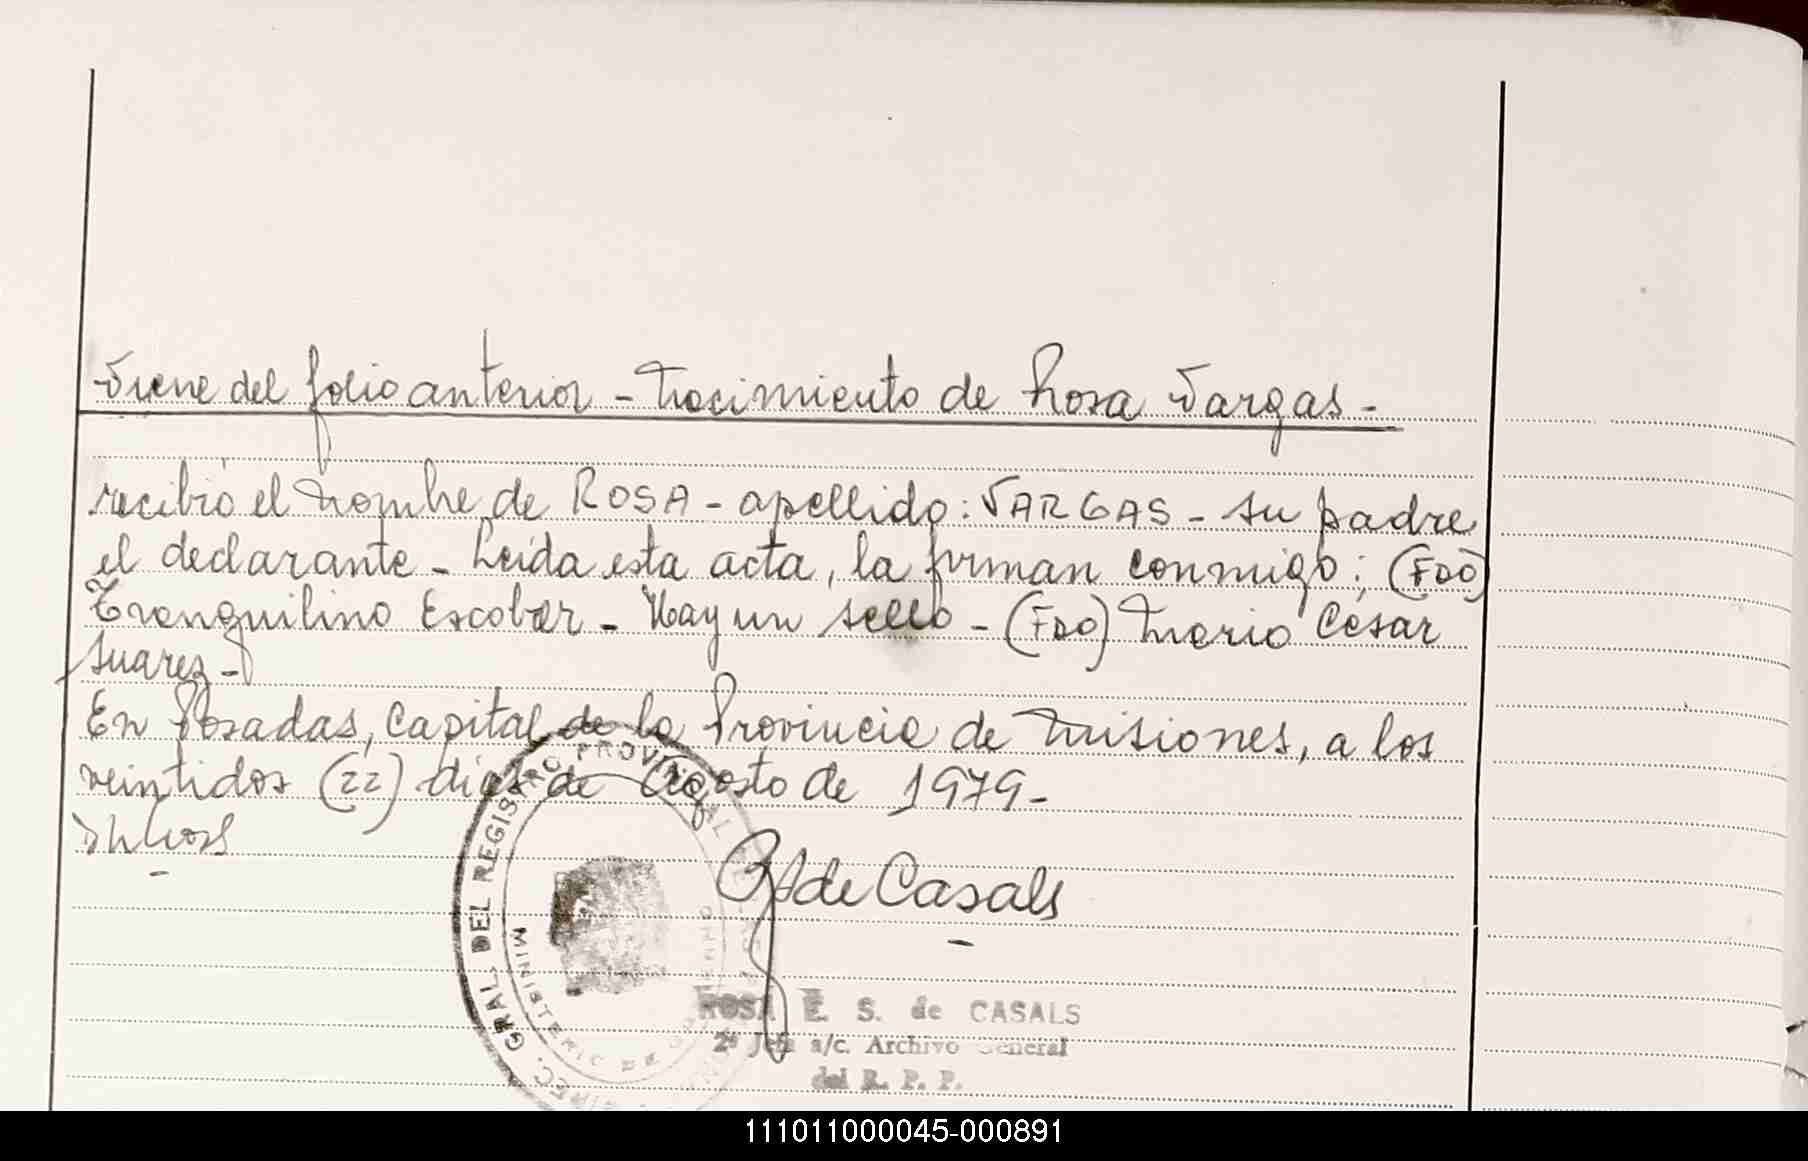 Viene del folio anterior - Nacimiento de Rosa Vargas -
recibió el nombre de ROSA - apellido: VARGAS - su padre
el declarante - Leída esta acta, la firman conmigo: (FDO)
Tranquilino Escobar - Hay un sello - (FDO) Mario César
Suarez -
En Posadas, Capital de la Provincia de Misiones, a los
veintidos (22) días de Agosto de 1979 -
de Casals
DIREC. GRAL. DEL REGISTRO PROVINCIAL
ROSA E. S. de CASALS
2º Jefa a/c. Archivo General
del R. P. P.
111011000045-000891